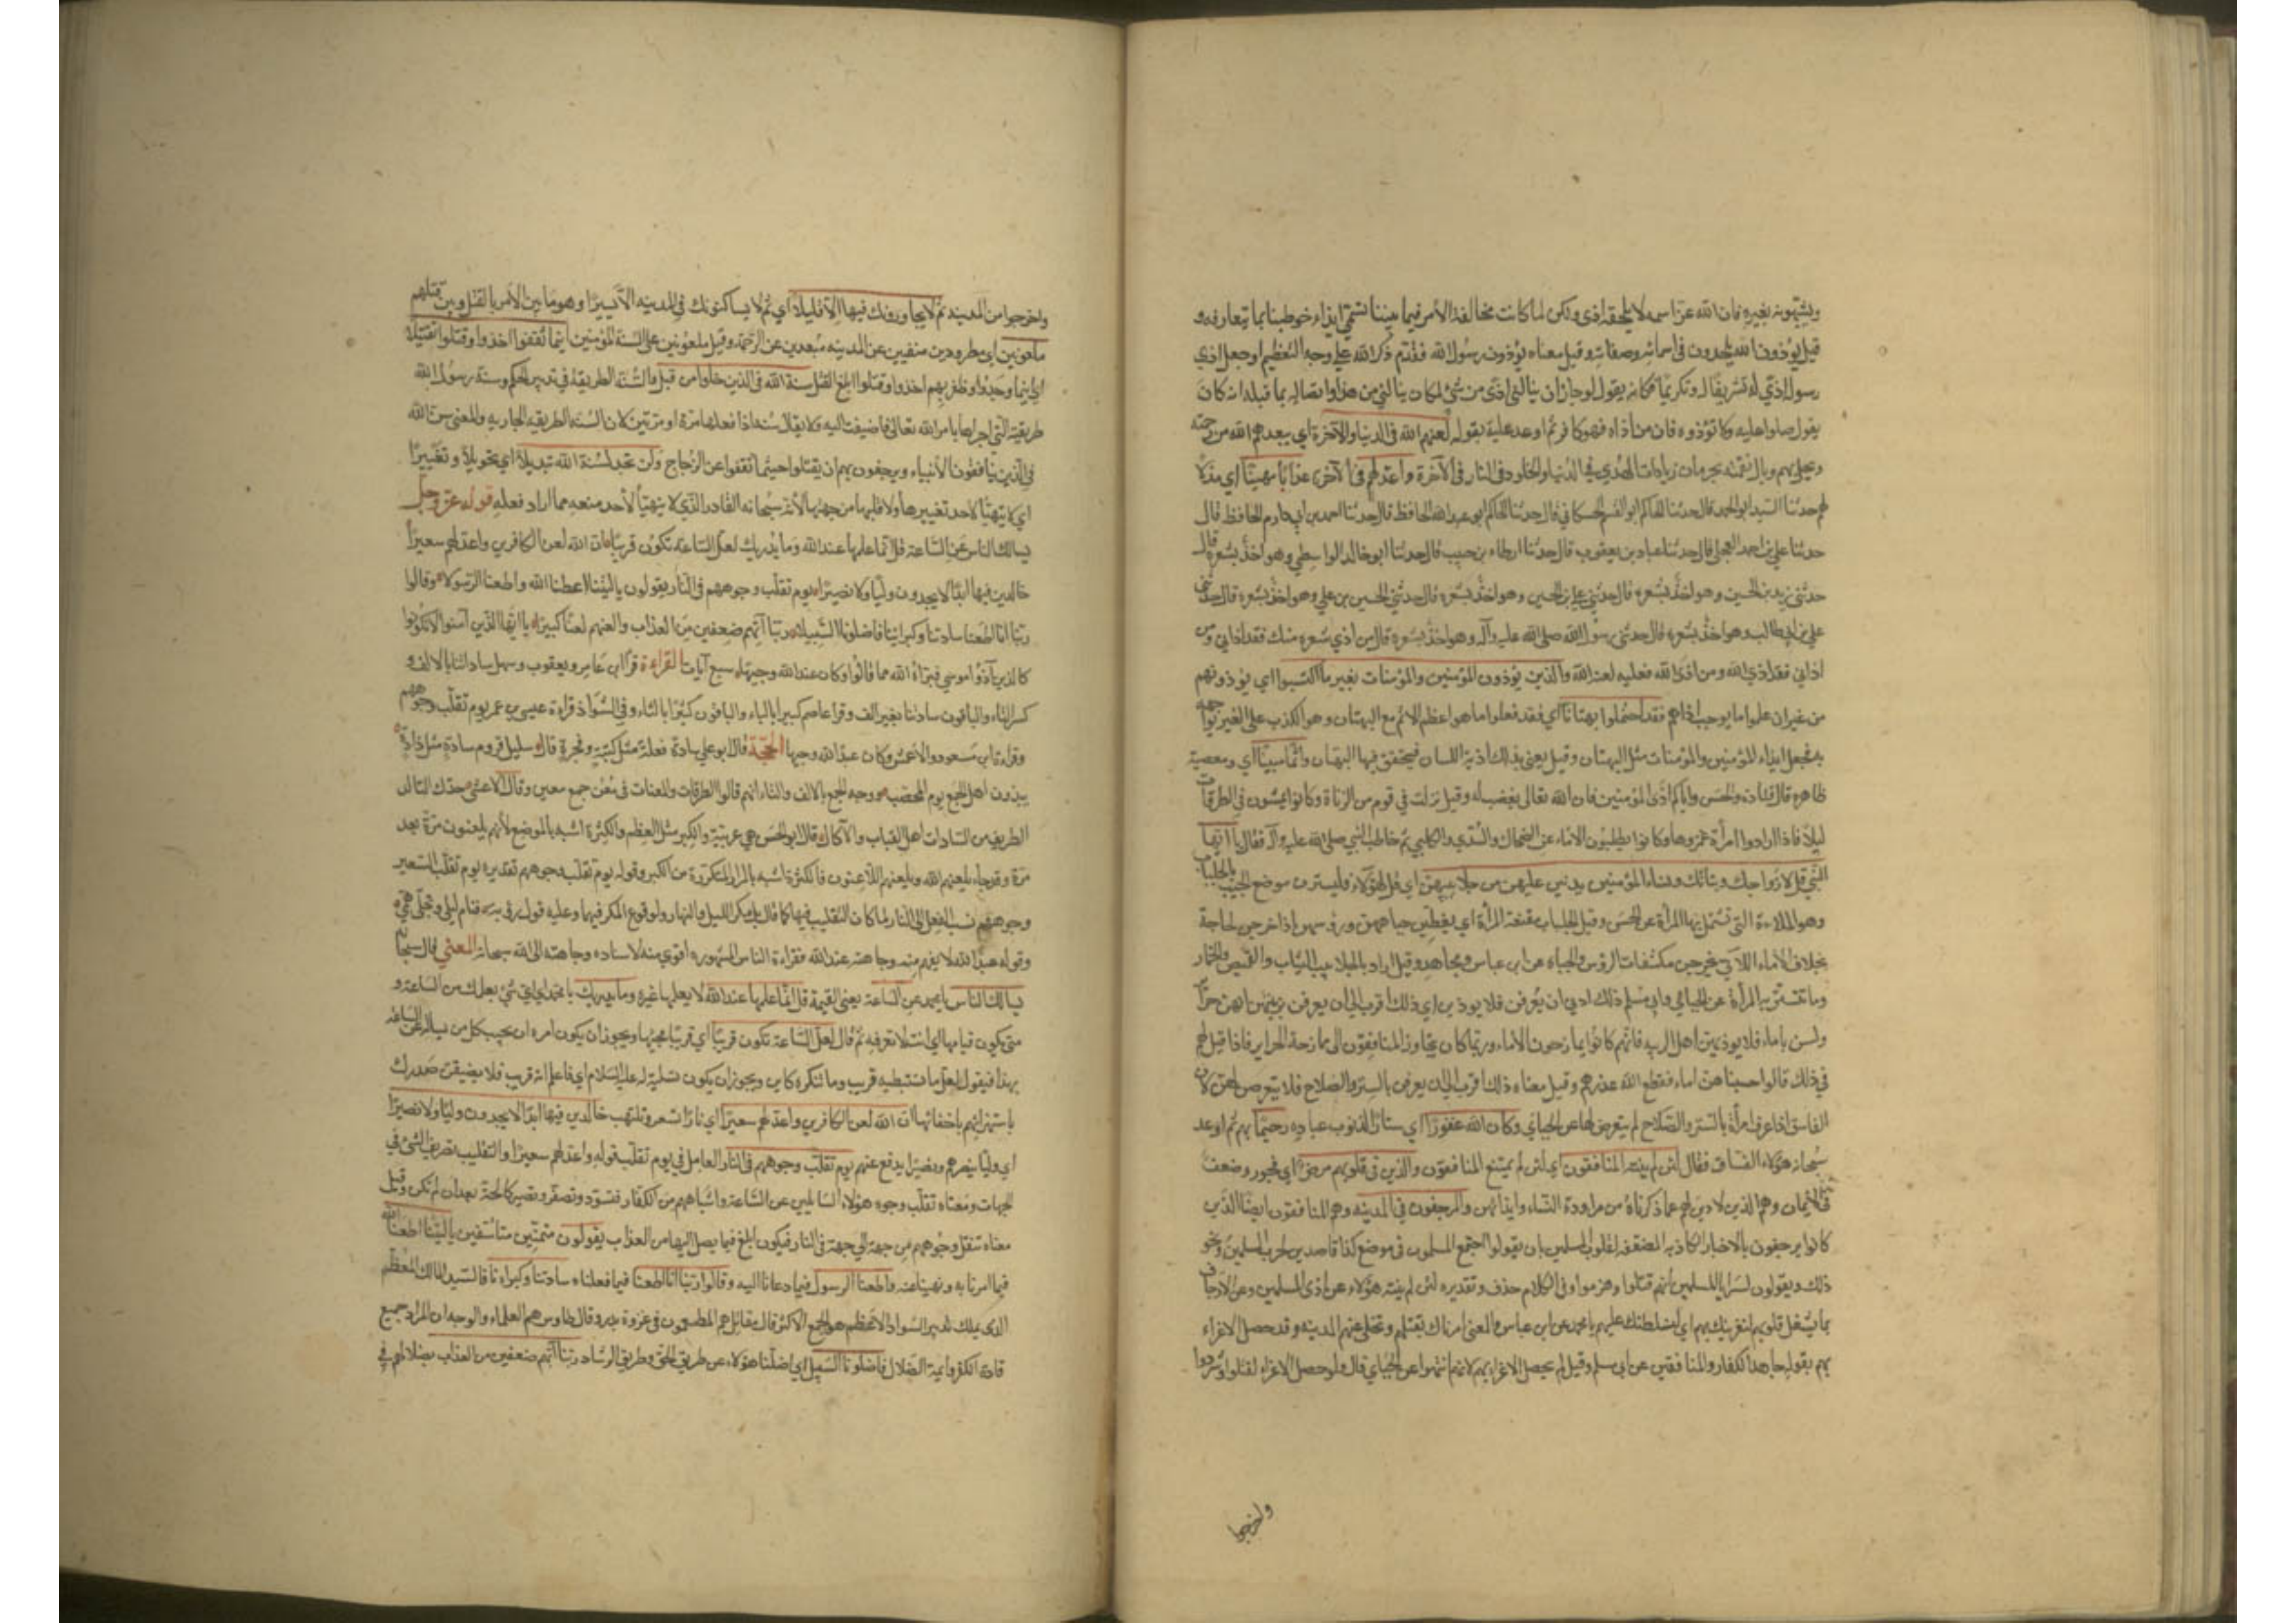 ويشبهونه بغيره فان الله عز اسمه لا يلحقه اذى ولكن لما كانت مخالفة الأمر فيما بيننا تسمى ايذاء خوطبنا بما نتعارفه و
قيل يؤذون الله يلحدون فى اسمائه وصفاته وقيل معناه يؤذون رسول الله فقدم ذكر الله على وجه التعظيم اوجعل اذي
رسوله اذي له تشريفا له وتكريما فكانه يقول لو جاز ان ينالنى اذى من شئ لكان ينالني من هذا واتصاله بما قبله انه كان
يقول صلوا عليه ولا تؤذوه فان من أذاه فهو كافر ثم اوعد عليه بقوله لعنهم الله فى الدنيا والآخرة اي يبعدهم الله من رحمته
ويحل بهم وبال نقمته بحرمان زيادات الهدي في الدنيا والخلود فى النار فى الآخرة واعد لهم فى الآخرى عذابا مهينا اي مذلا
لهم حدثنا السيد ابو الحمد قال حدثنا الحاكم ابو القسم الحسكاني قال حدثنا الحاكم ابو عبد الله الحافظ قال حدثنا احمد بن ابي دارم الحافظ قال
حدثنا علي بن احمد العجلي قال حدثنا عباد بن يعقوب قال حدثنا ارطاه بن حبيب قال حدثنا ابو خالد الواسطي وهو اخذ بشعره قال
حدثنى زيد بن على بن الحسين وهو اخذ بشعره قال حدثني علي بن الحسين وهو اخذ بشعره قال حدثني الحسين بن علي وهو اخذ بشعره قال حدثنى
علي بن ابي طالب وهو اخذ بشعره قال حدثنى رسول الله صلى الله عليه وآله وهو اخذ بشعره قال من اذي شعره منك فقد اذاني ومن
اذاني فقد اذي الله ومن اذى الله فعليه لعنة الله والذين يؤذون المؤمنين والمؤمنات بغير ما اكتسبوا اي يؤذونهم
من غير ان علموا ما يوجب اذاهم فقد احتملوا بهتانا اي فقد فعلوا ما هو اعظم الاثم مع البهتان وهو الكذب على الغير يواجهه
به فجعل ايذاء المؤمنين والمؤمنات مثل البهتان وقيل يعنى بذلك اذية اللسان فيتحقق فيها البهتان واثما مبينا اي ومعصية
ظاهره قال قتاده والحسن واياكم اذى المؤمنين فان الله تعالى يغضب له وقيل نزلت في قوم من الزناة وكانوا يمشون فى الطرقات
ليلا فاذا ارادوا امرأة غمزوها وكانوا يطلبون الاماء عن الضحاك والسدي والكلبي ثم خاطب النبي صلى الله عليه وآله فقال يا ايها
النبي قل لازواجك وبناتك ونساء المؤمنين يدنين عليهن من جلابيبهن اي قل لهؤلاء فليسترن موضع الجيب بالجلباب
وهو الملاءة التي تشتمل بها المرأة عن الحسن وقيل الجلباب مقنعة المرأة اي يغطين جباههن ورؤسهن اذا خرجن لحاجة
بخلاف الاماء اللاتي يخرجن مكشفات الرؤس والجباه عن ابن عباس ومجاهد وقيل اراد بالجلابيب الثياب والقميص والخمار
وما تتستر به المرأة عن الجبائي وابي مسلم ذلك ادنى ان يعرفن فلا يوذين اي ذلك اقرب الى ان يعرفن بزيهن انهن حرائر
ولسن باماء فلا يوذيهن اهل الريبه فانهم كانوا يمازحون الأماء وربما كان يتجاوز المنافقون الى ممازحة الحراير فاذا قيل لهم
فى ذلك قالوا حسبنا هن اماء فقطع الله عذرهم وقيل معناه ذلك اقرب الى ان يعرفن بالستر والصلاح فلا يتعرض لهن لان
الفاسق اذا عرف امرأة بالستر والصلاح لم يتعرض لها عن الجبائي وكان الله غفورا اي ستارا لذنوب عباده رحيما بهم ثم اوعد
سبحانه هؤلاء الفساق فقال لئن لم ينته المنافقون اي لئن لم يمتنع المنافقون والذين فى قلوبهم مرض اي فجور وضعف
فى الايمان وهم الذين لا دين لهم عما ذكرناه من مراودة النساء وايذائهن والمرجفون فى المدينه وهم المنافقون ايضا الذين
كانوا يرجفون بالاخبار الكاذبة المضعفة لقلوب المسلمين بان يقولوا اجتمع المسلمون فى موضع كذا قاصدين لحرب المسلمين ونحو
ذلك ويقولون لسرايا المسلمين انهم قتلوا وهزموا وفى الكلام حذف وتقديره لئن لم ينته هؤلاء عن اذى المسلمين وعن الارجاف
بما يشغل قلوبهم لنغرينك بهم اي لنسلطنك عليهم يا محمد عن ابن عباس والمعنى امرناك بقتلهم وتخلى عنهم المدينه وقد حصل الاغراء
بهم بقوله جاهد الكفار والمنافقين عن ابى مسلم وقيل لم يحصل الاغراء بهم لانهم انتهوا عن الجبائي قال ولو حصل الاغراء لقتلوا وشردوا
واخرجوا
واخرجوا من المدينه ثم لا يجاورونك فيها الا قليلا اي ثم لا يساكنونك في المدينه الا يسيرا وهو ما بين الأمر بالقتل وبين قتلهم
ملعونين اي مطرودين منفيين عن المدينه مبعدين عن الرحمة وقيل ملعونين على السنة المؤمنين اينما ثقفوا اخذوا وقتلوا تقتيلا
اي اينما وجدوا وظفر بهم اخذوا وقتلوا ابلغ القتل سنة الله فى الذين خلوا من قبل والسنة الطريقة في تدبير الحكم وسنة رسول الله
طريقته التي اجراها بامر الله تعالى فاضيفت اليه ولا يقال سنة اذا فعلها مرة او مرتين لان السنه الطريقه الجاريه والمعنى سن الله
فى الذين ينافقون الأنبياء ويرجفون بهم ان يقتلوا حيثما ثقفوا عن الزجاج ولن تجد لسنة الله تبديلا اي تحويلا وتغييرا
اي لا يتهيأ لاحد تغييرها ولا قلبها من جهتها لأنه سبحانه القادر الذي لا يتهيأ لأحد منعه مما اراد فعله قوله عز وجل
يسالك الناس عن الساعة قل انما علمها عند الله وما يدريك لعل الساعة تكون قريبا ان الله لعن الكافرين واعد لهم سعيرا
خالدين فيها ابدا لا يجدون وليا ولا نصيرا يوم تقلب وجوههم فى النار يقولون ياليتنا اطعنا الله واطعنا الرسولا وقالوا
ربنا انا اطعنا سادتنا وكبراءنا فاضلونا السبيلا ربنا آتهم ضعفين من العذاب والعنهم لعنا كبيرا يا ايها الذين آمنوا لا تكونوا
كالذين آذوا موسي فبرأه الله مما قالوا وكان عند الله وجيها سبع آيات القراءة قرأ ابن عامر ويعقوب وسهل ساداتنا بالالف و
كسر التاء والباقون سادتنا بغير الف وقرا عاصم كبيرا بالباء والباقون كثيرا بالثاء وفى الشواذ قراءة عيسى بن عمر يوم تقلب وجوههم
وقراءة ابن مسعود والاعمش وكان عبدا لله وجيها الحجة قال ابو علي سادة فعلة مثل كتبة وفجرة قال سليل قروم سادة مثل ذادة
يبذون اهل الجمع يوم المحصب ووجه الجمع بالالف والتاء انهم قالوا الطرقات والمعنات فى معن جمع معين وقال الاعشى جدك التالد
الطريف من السادات اهل القباب والآكال قال ابو الحسن هي عربية والكبر مثل العظم والكثرة اشبه بالموضع لأنهم يلعنون مرة بعد
مرة وقد جاء يلعنهم الله ويلعنهم اللاعنون فالكثرة اشبه بالمرار المتكررة من الكبر وقوله يوم تقلب وجوههم تقديره يوم تقلب السعير
وجوههم نسب الفعل الى النار لما كان التقليب فيها كما قال بل مكر الليل والنهار ولوقوع المكر فيهما وعليه قول رؤبه فنام ليلي وتجلى همي
وقوله عبدا لله لا يفهم منه وجاهته عند الله فقراءة الناس المشهوره اقوي منه لاسناده وجاهته الى الله سبحانه المعنى قال سبحانه
يسالك الناس يا محمد عن الساعة يعنى القيمة قل انما علمها عند الله لا يعلمها غيره وما يدريك يا محمد اي اي شئ يعلمك من الساعة و
متى يكون قيامها اي انت لا تعرفه ثم قال لعل الساعة تكون قريبا اي قريبا مجيئها ويجوز ان يكون امره ان يجيب كل من يساله عن الساعه
بهذا فيقول لعل ما تستبطيه قريب وما تنكره كاين ويجوز ان يكون تسلية له عليه السلام اي فاعلم انه قريب فلا يضيقن صدرك
باستهزائهم باخفائها ان الله لعن الكافرين واعد لهم سعيرا اي نارا تستعر وتلتهب خالدين فيها ابدا لا يجدون وليا ولا نصيرا
اي وليا ينصرهم ونصيرا يدفع عنهم يوم تقلب وجوههم فى النار العامل في يوم تقلب قوله واعد لهم سعيرا والتقليب تصريف الشئ فى
الجهات ومعناه تقلب وجوه هؤلاء السائلين عن الساعة واشباههم من الكفار فتسود وتصفر وتصير كالحة بعد ان لم تكن وقيل
معناه تنقل وجوههم من جهة الي جهة فى النار فيكون ابلغ فيما يصل اليها من العذاب يقولون متمنين متاسفين ياليتنا اطعنا الله
فيما امرنا به ونهينا عنه واطعنا الرسول فيما دعانا اليه وقالوا ربنا انا اطعنا فيما فعلناه سادتنا وكبراءنا فالسيد المالك المعظم
الذى يملك تدبير السواد الاعظم هو الجمع الاكثر قال مقاتل هم المطعمون فى غزوة بدر وقال طاوس هم العلماء والوجه ان المراد جميع
قادة الكفر وايمة الضلال فاضلونا السبيل اي اضلنا هؤلاء عن طريق الحق وطريق الرشاد ربنا آتهم ضعفين من العذاب بضلالهم فى